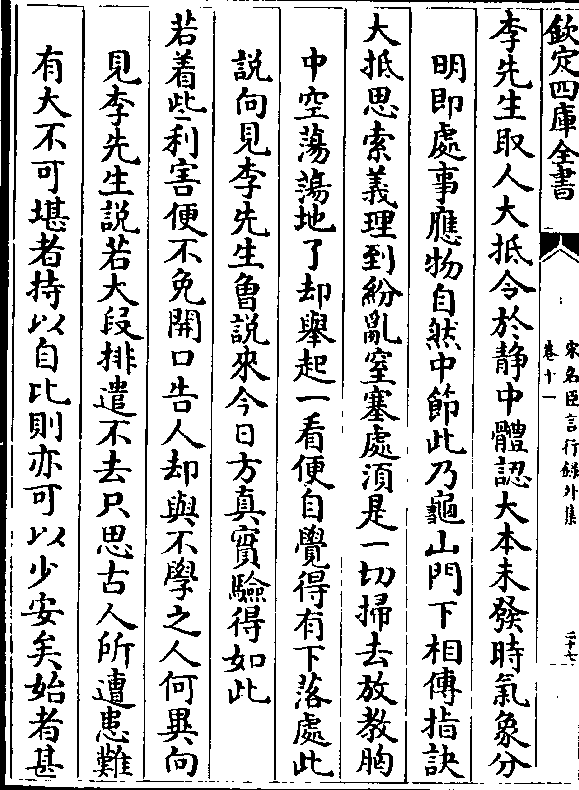 欽定四庫全書
宋名臣言行錄外集
卷十一
二十七
李先生取人大抵令於静中體認大本未發時氣象分
明即處事應物自然中節此乃龜山門下相傳指訣
大抵思索義理到紛亂窒塞處須是一切掃去放教胸
中空蕩蕩地了却舉起一看便自覺得有下落處此
説向見李先生曾説來今日方真實驗得如此
若着些利害便不免開口告人却與不學之人何異向
見李先生説若大段排遣不去只思古人所遭患難
有大不可堪者持以自比則亦可以少安矣始者甚